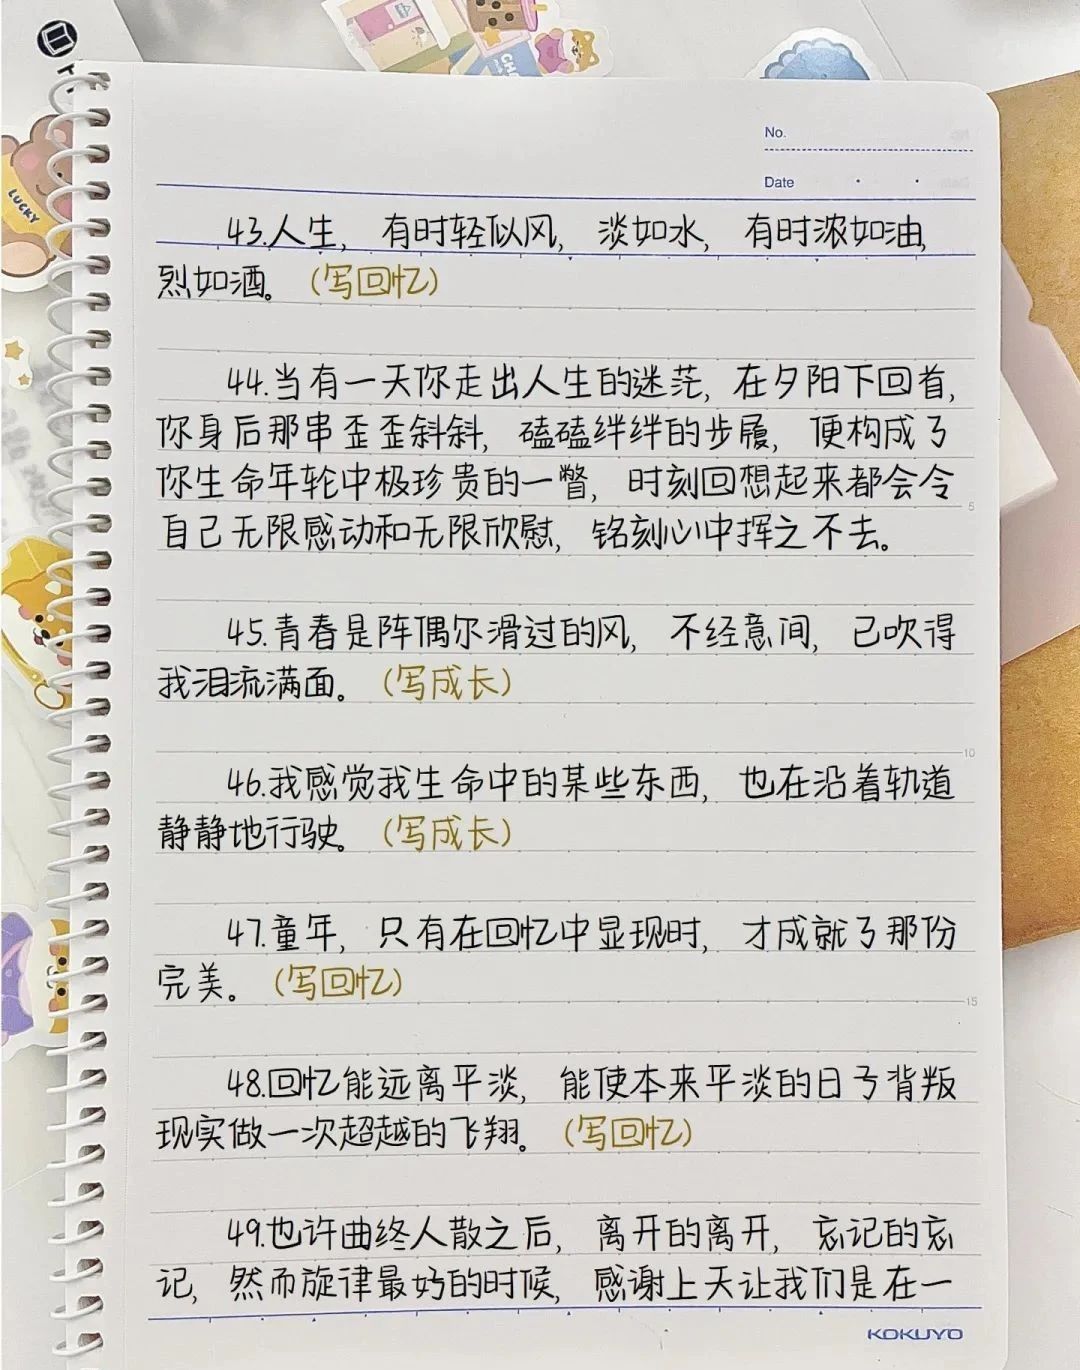 No.
Date
LUCKY
43.人生，有时轻似风，淡如水，有时浓如油，
烈如酒。（写回忆）
44.当有一天你走出人生的迷茫，在夕阳下回首，
你身后那串歪歪斜斜，磕磕绊绊的步履，便构成了
你生命年轮中极珍贵的一瞥，时刻回想起来都会令
自己无限感动和无限欣慰，铭刻心中挥之不去。
5
45.青春是阵偶尔滑过的风，不经意间，已吹得
我泪流满面。（写成长）
10
46.我感觉我生命中的某些东西，也在沿着轨道
静静地行驶。（写成长）
47.童年，只有在回忆中显现时，才成就了那份
完美。（写回忆）
15
48.回忆能远离平淡，能使本来平淡的日子背叛
现实做一次超越的飞翔。（写回忆）
49.也许曲终人散之后，离开的离开，忘记的忘
记，然而旋律最好的时候，感谢上天让我们是在一
KOKUYO